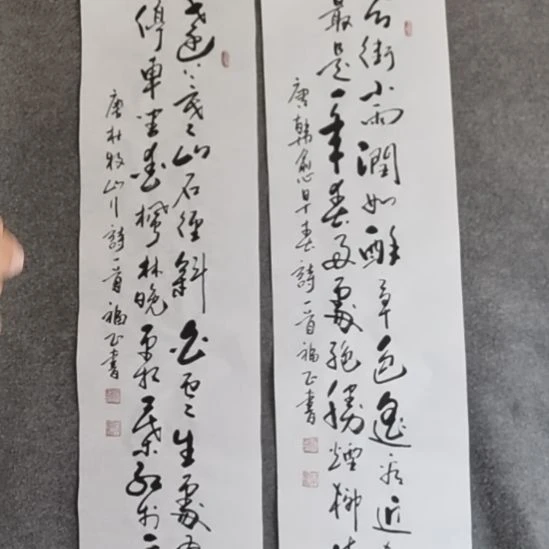 街小雨潤如酥草色遙看近
最是一年春好處絕勝煙柳
唐韓愈早春詩一首福正書
遠上寒山石徑斜白雲生處有
停車坐愛楓林晚霜葉紅於二
唐杜牧山行詩一首福正書